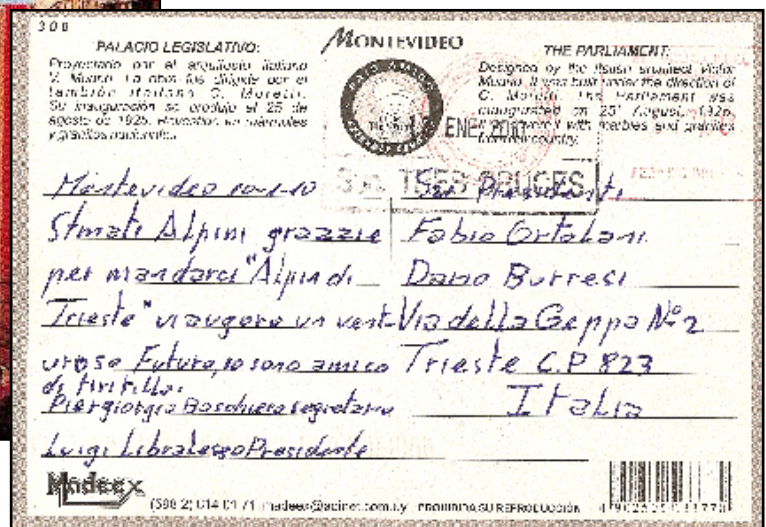 308
PALACIO LEGISLATIVO:
Proyectado por el arquitecto italiano
V. Meano. La obra fue dirigida por el
también italiano G. Moretti.
Su inauguración se produjo el 25 de
agosto de 1925. Revestido en mármoles
y granitos nacionales.
MONTEVIDEO
THE PARLIAMENT:
Designed by the Italian architect Victor
Meano. It was built under the direction of
G. Moretti. The Parliament was
inaugurated on 25 August, 1925.
It is covered with marbles and granites
from the country.
ENE. 2010
Suc TRES CRUCES
Montevideo 10-1-10
Stmati Alpini grazzie
per mandarci "Alpin di
Trieste" vi augoro un vent-
uroso Futuro, io sono amico
di
Piergiorgio Baschiera segretario
Luigi Libralesso Presidente
Sr. Presidenti
Fabio Ortolani
Dario Burresi
Via della Geppa Nº 2
Trieste C.P 823
Italia
Madeex
(598 2) 614 01 71 madeex@adinet.com.uy PROHIBIDA SU REPRODUCCIÓN